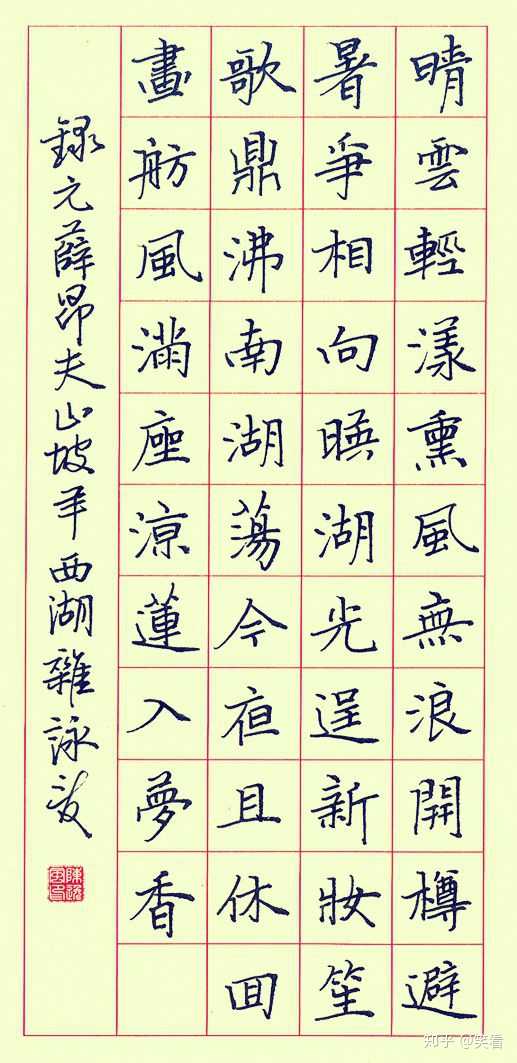 晴雲輕漾熏風無浪開樽避
暑爭相向映湖光逞新妝笙
歌鼎沸南湖蕩今亱且休囬
畫舫風滿座涼蓮入夢香
錄元薛昂夫山坡羊西湖雜詠
知乎 @笑看